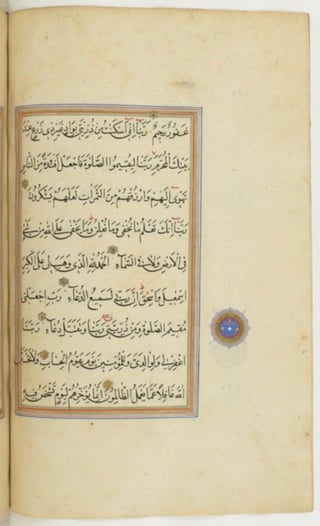 غَفُورٌ رَحِيمٌ رَبَّنَا اِنِّي اَسْكَنْتُ مِنْ ذُرِّيَّتِي بِوَادٍ غَيْرِ ذِي زَرْعٍ عِنْدَ
بَيْتِكَ الْمُحَرَّمِ رَبَّنَا لِيُقِيمُوا الصَّلٰوةَ فَاجْعَلْ اَفْئِدَةً مِنَ النَّاسِ
تَهْوِي اِلَيْهِمْ وَارْزُقْهُمْ مِنَ الثَّمَرَاتِ لَعَلَّهُمْ يَشْكُرُونَ
رَبَّنَا اِنَّكَ تَعْلَمُ مَا نُخْفِي وَمَا نُعْلِنُ وَمَا يَخْفٰى عَلَى اللهِ مِنْ شَيْءٍ
فِي الْاَرْضِ وَلَا فِي السَّمَاءِ اَلْحَمْدُ لِلّٰهِ الَّذِي وَهَبَ لِي عَلَى الْكِبَرِ
اِسْمٰعِيلَ وَاِسْحٰقَ اِنَّ رَبِّي لَسَمِيعُ الدُّعَاءِ رَبِّ اجْعَلْنِي
مُقِيمَ الصَّلٰوةِ وَمِنْ ذُرِّيَّتِي رَبَّنَا وَتَقَبَّلْ دُعَاءِ رَبَّنَا
اغْفِرْ لِي وَلِوَالِدَيَّ وَلِلْمُؤْمِنِينَ يَوْمَ يَقُومُ الْحِسَابُ وَلَا تَحْسَبَنَّ
اللهَ غَافِلًا عَمَّا يَعْمَلُ الظَّالِمُونَ اِنَّمَا يُؤَخِّرُهُمْ لِيَوْمٍ تَشْخَصُ فِيهِ